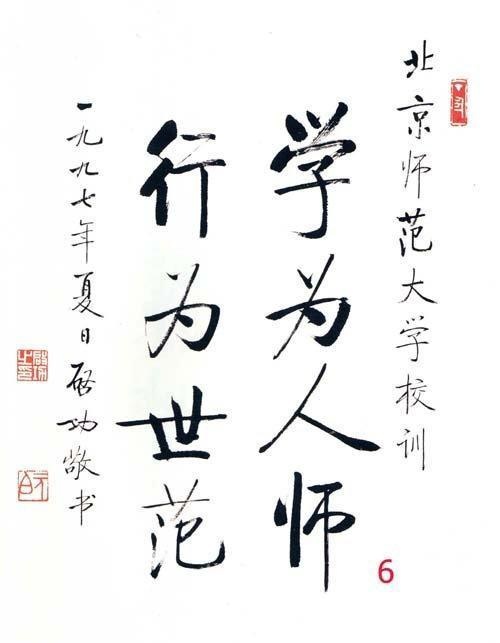 北京师范大学校训
学为人师
行为世范
一九九七年夏日启功敬书
6